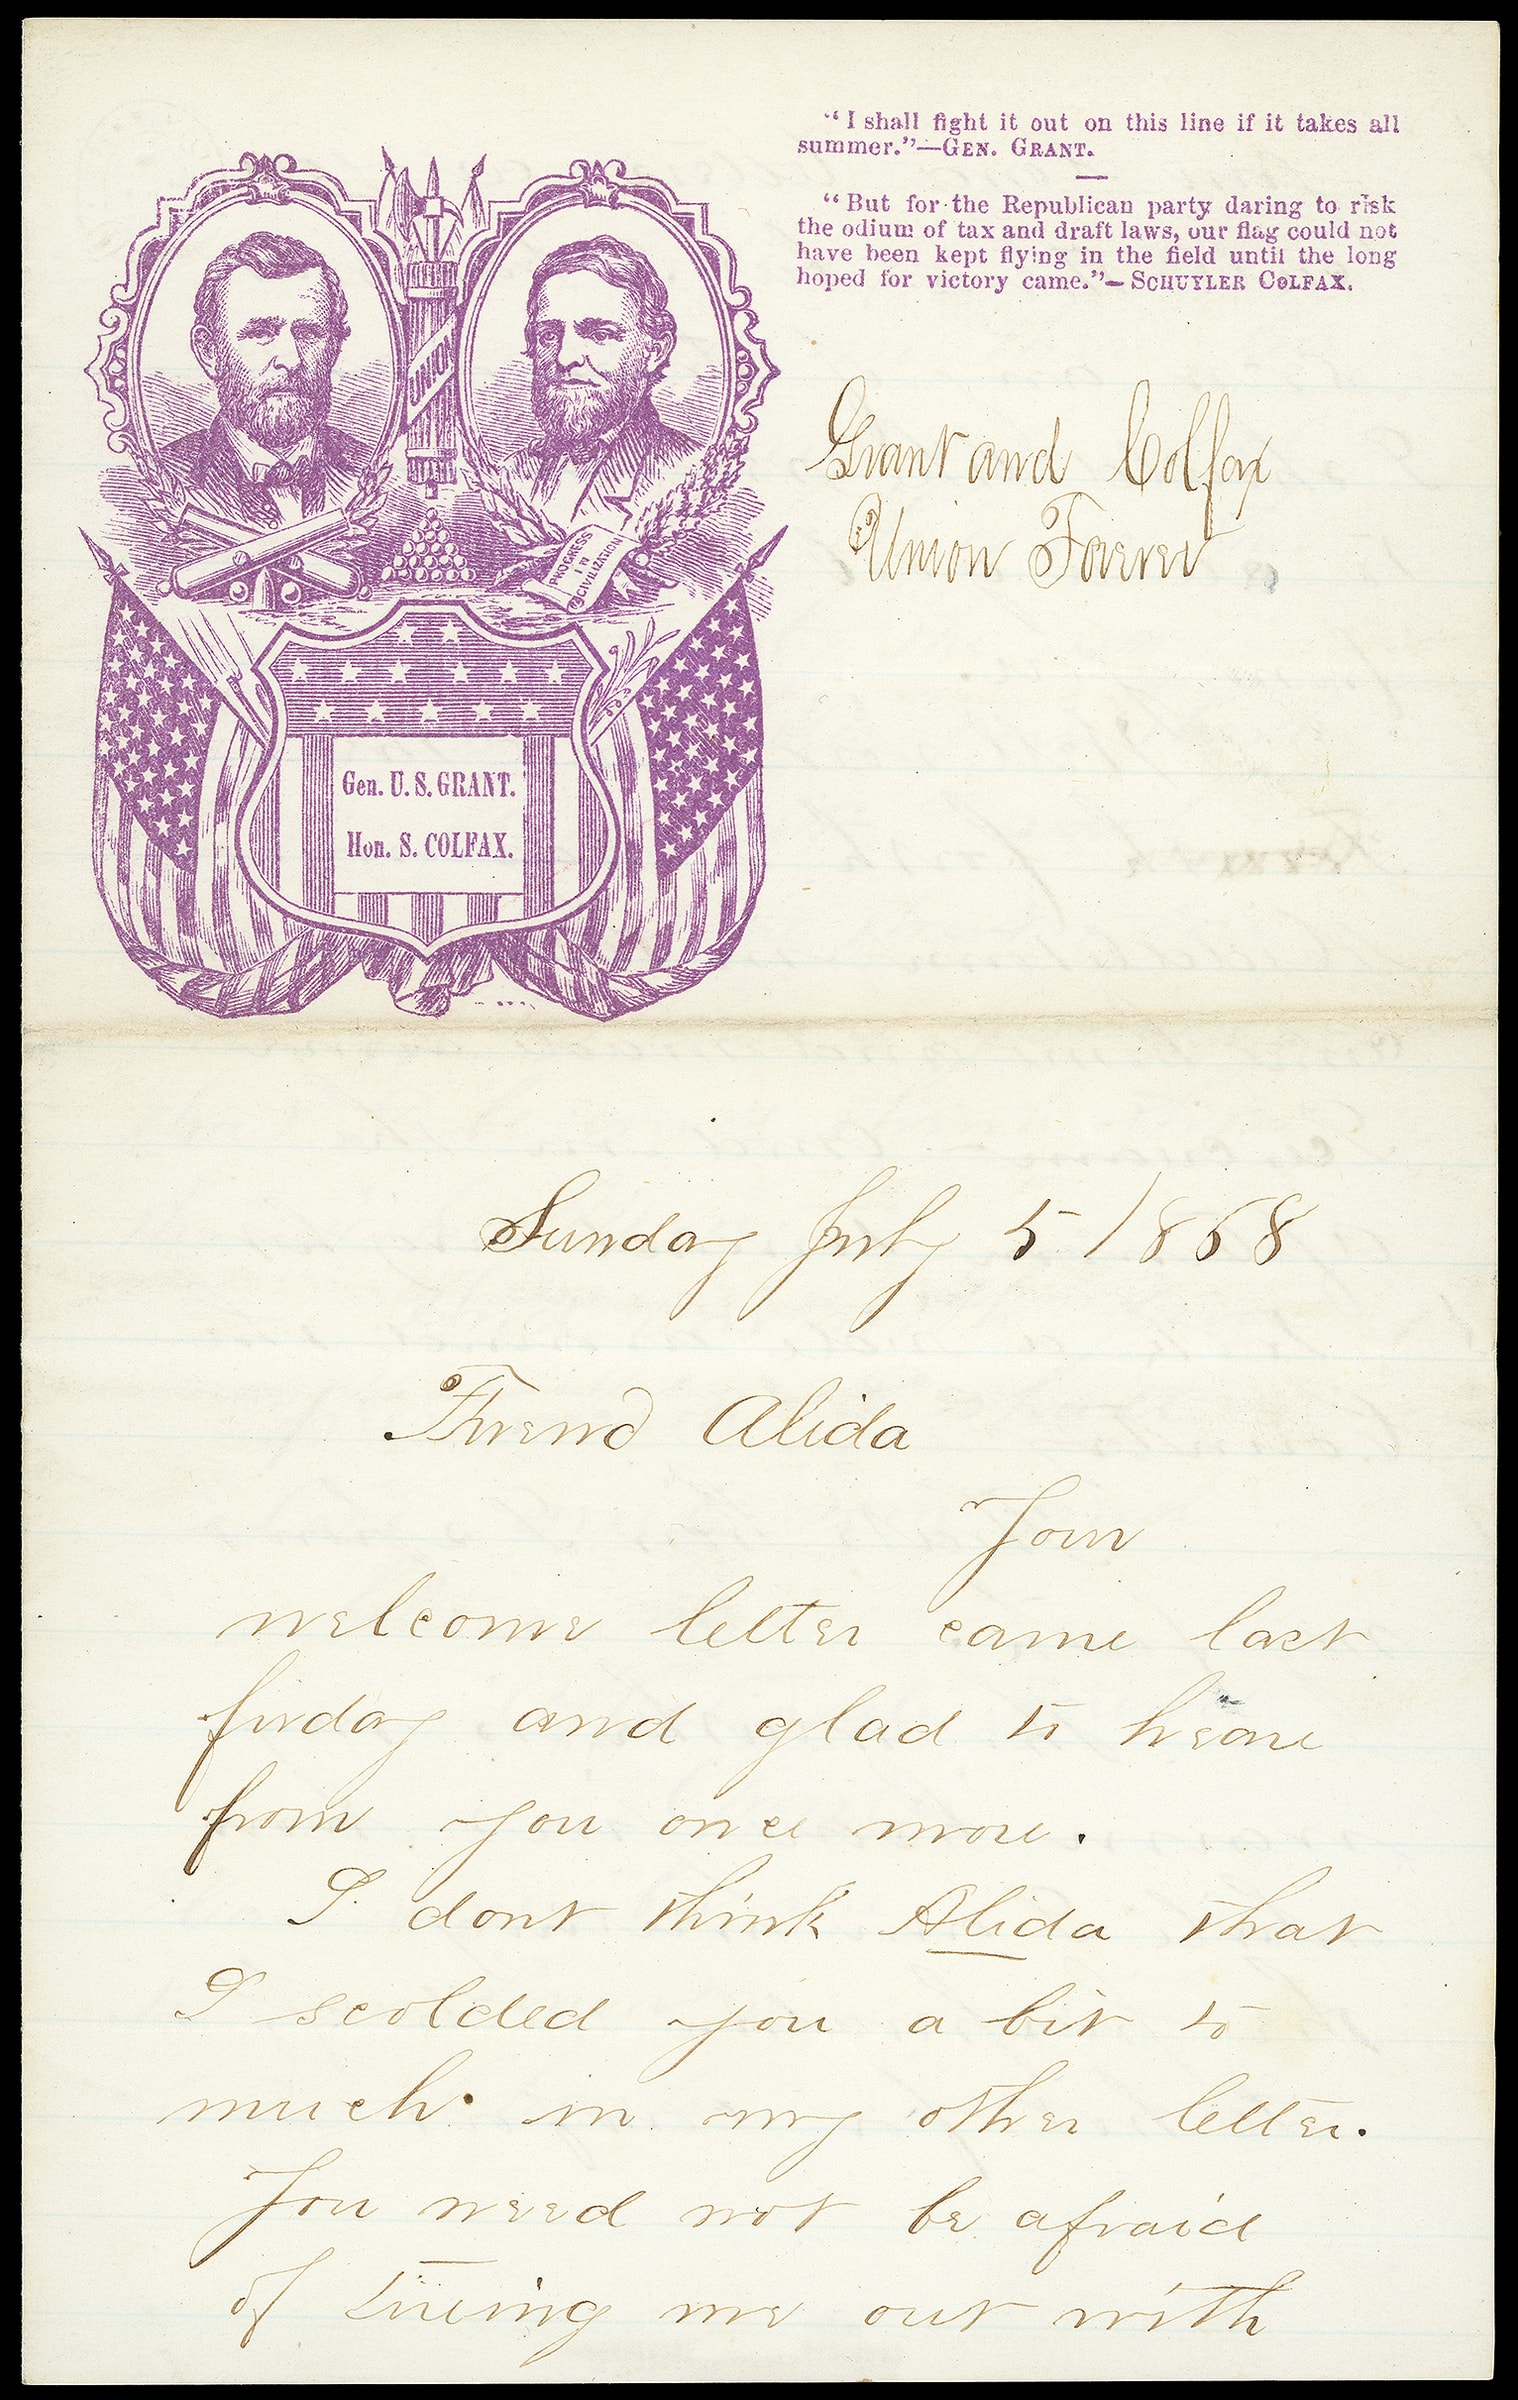 "I shall fight it out on this line if it takes all
summer."—GEN. GRANT.
"But for the Republican party daring to risk
the odium of tax and draft laws, our flag could not
have been kept flying in the field until the long
hoped for victory came."—SCHUYLER COLFAX.
UNION
PROGRESS
IN
CIVILIZATION
Grant and Colfax
Union Forever
Gen. U. S. GRANT.
Hon. S. COLFAX.
Sunday July 5 1868
Friend Alida
Your
welcome letter came last
firday and glad to heare
from you once more.
I dont think Alida that
I scolded you a bit to
much in my other letter.
You need not be afraid
of tireing me out with